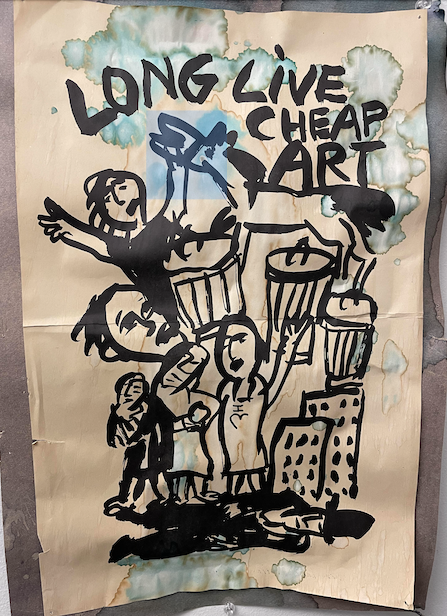 LONG LiVE
CHEAP
ART